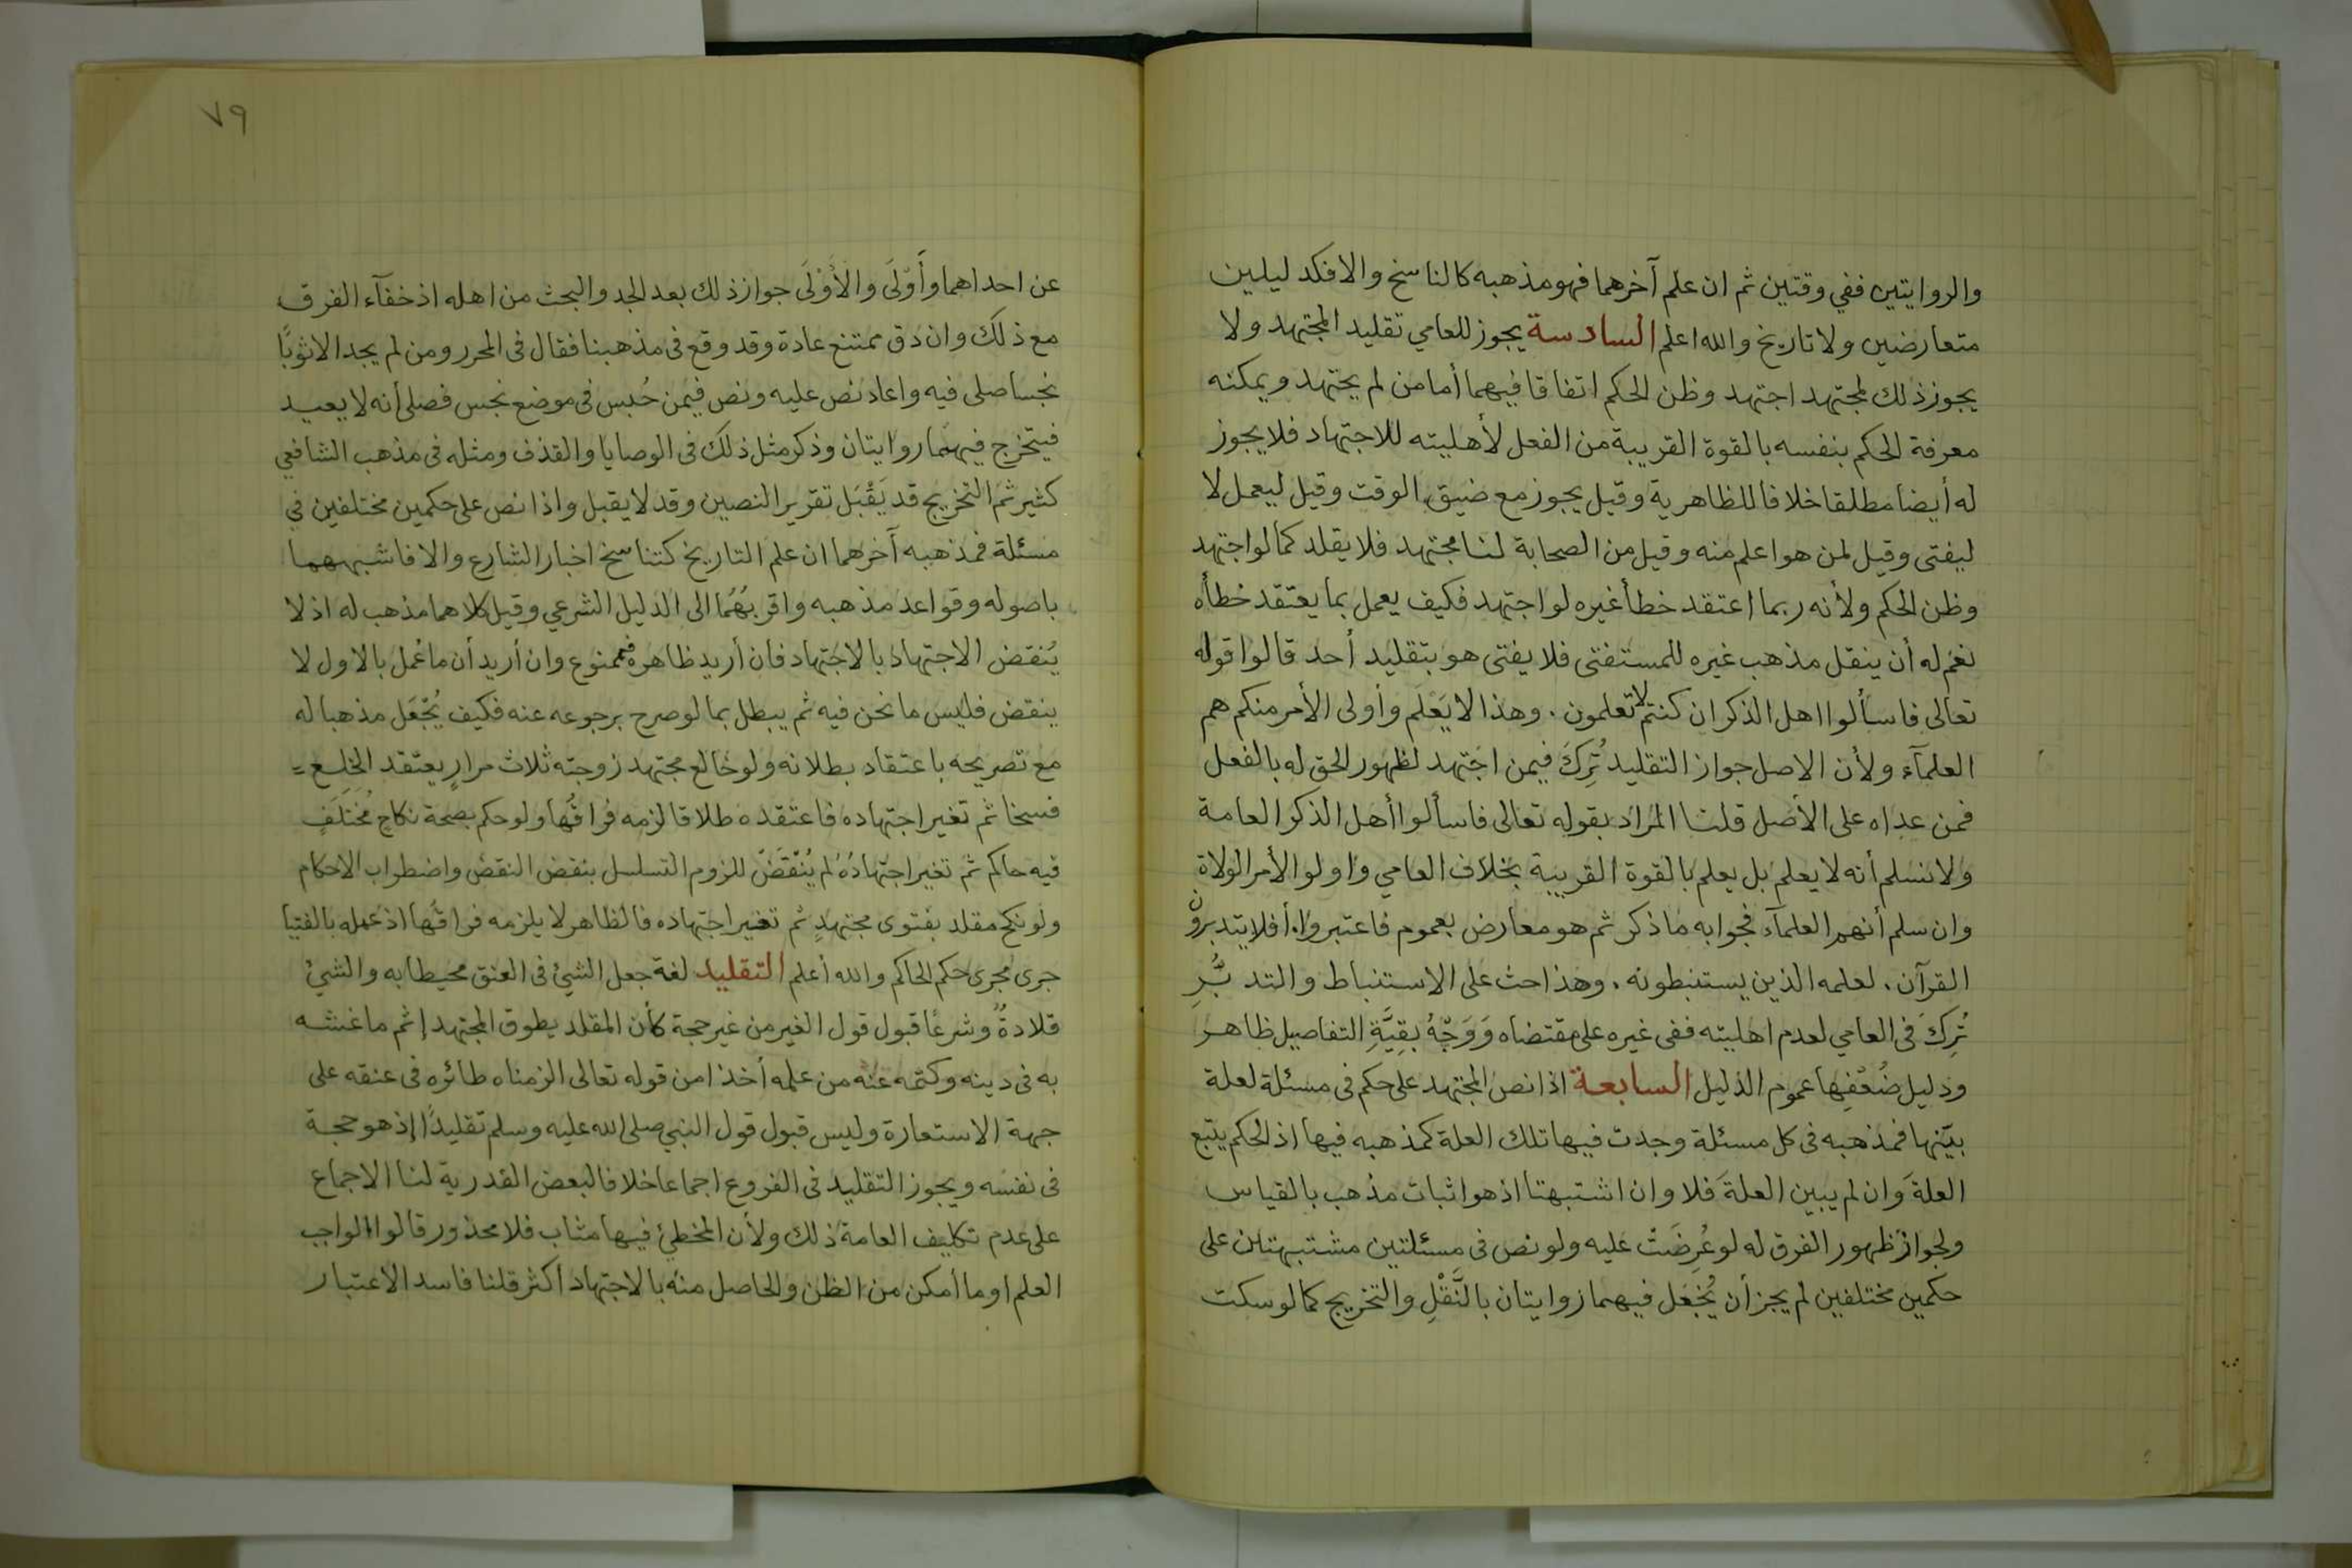 والروايتين ففي وقتين ثم ان علم آخرهما فهو مذهبه كالناسخ والا فكدليلين
متعارضين ولا تاريخ والله اعلم السادسة يجوز للعامي تقليد المجتهد ولا
يجوز ذلك لمجتهد اجتهد وظن الحكم اتفاقا فيهما أما من لم يجتهد ويمكنه
معرفة الحكم بنفسه بالقوة القريبة من الفعل لأهليته للاجتهاد فلا يجوز
له أيضا مطلقا خلافا للظاهرية وقيل يجوز مع ضيق الوقت وقيل ليعمل لا
ليفتى وقيل لمن هو اعلم منه وقيل من الصحابة لنا مجتهد فلا يقلد كما لو اجتهد
وظن الحكم ولأنه ربما اعتقد خطأ غيره لو اجتهد فكيف يعمل بما يعتقد خطأه
نعم له أن ينقل مذهب غيره للمستفتى فلا يفتى هو بتقليد أحد قالوا قوله
تعالى فاسألوا اهل الذكر ان كنتم لا تعلمون . وهذا لا يَعْلَم وأولى الأمر منكم هم
العلمآء ولأن الاصل جواز التقليد تُرِكَ فيمن اجتهد لظهور الحق له بالفعل
فمن عداه على الأصل قلنا المراد بقوله تعالى فاسألوا أهل الذكر العامة
ولا نسلم أنه لا يعلم بل يعلم بالقوة القريبة بخلاف العامي واولوا الأمر الولاة
وان سلم أنهم العلمآء فجوابه ما ذكر ثم هو معارض بعموم فاعتبروا . أفلا يتدبرون
القرآن . لعلمه الذين يستنبطونه . وهذا حث على الاستنباط والتدبُّرِ
تُرِكَ فى العامي لعدم اهليته ففى غيره على مقتضاه وَوَجْهُ بقِيَّةِ التفاصيل ظاهر
ودليل ضُعْفِها عموم الدليل السابعة اذا نص المجتهد على حكم فى مسئلة لعلة
بيّنها فمذهبه فى كل مسئلة وجدت فيها تلك العلة كمذهبه فيها اذ الحكم يتبع
العلةَ وان لم يبين العلةَ فلا وان اشتبهتا اذ هو اثبات مذهب بالقياس
ولجواز ظهور الفرق له لو عُرِضَتْ عليه ولو نص فى مسئلتين مشتبهتين على
حكمين مختلفين لم يجز أن يُجْعَل فيهما روايتان بالنَّقْلِ والتخريج كما لو سكت
٧٩
عن احداهما وأَوْلَى والأَوْلَى جواز ذلك بعد الجد والبحث من اهله اذ خفآء الفرق
مع ذلك وان دق ممتنع عادة وقد وقع فى مذهبنا فقال فى المحرر ومن لم يجد الا ثوبًا
نجسا صلى فيه واعاد نص عليه ونص فيمن حُبِس فى موضع نجس فصلى أنه لا يعيد
فيتخرج فيهما روايتان وذكر مثل ذلك فى الوصايا والقذف ومثله فى مذهب الشافعي
كثير ثم التخريج قد يَقْبَل تقرير النصين وقد لا يقبل واذا نص على حكمين مختلفين في
مسئلة فمذهبه آخرهما ان علم التاريخ كتناسخ اخبار الشارع والا فاشبههما
باصوله وقواعد مذهبه واقربُهُما الى الدليل الشرعي وقيل كلاهما مذهب له اذ لا
يُنقض الاجتهاد بالاجتهاد فان أريد ظاهره فممنوع وان أريد أن ما عُمل بالاول لا
ينقض فليس ما نحن فيه ثم يبطل بما لو صرح برجوعه عنه فكيف يُجْعَل مذهبا له
مع تصريحه باعتقاد بطلانه ولو خالع مجتهد زوجته ثلاث مرارٍ يعتقد الخلع
فسخا ثم تغير اجتهاده فاعتقده طلاقا لزمه فراقُها ولو حكم بصحة نكاحٍ مُختَلَفٍ
فيه حاكم ثم تغير اجتهادُهُ لم يُنْقَضْ للزوم التسلسل بنقض النقض واضطراب الاحكام
ولو نكح مقلد بفتوى مجتهدٍ ثم تغير اجتهاده فالظاهر لا يلزمه فراقُها اذ عمله بالفتيا
جرى مجرى حكم الحاكم والله أعلم التقليد لغة جعل الشئ فى العنق محيطا به والشئُ
قلادةٌ وشرعًا قبول قول الغير من غير حجة كأن المقلد يطوق المجتهد إثم ما غشه
به فى دينه وكتمه عنه من علمه أخذا من قوله تعالى الزمناه طائره فى عنقه على
جهة الاستعارة وليس قبول قول النبي صلى الله عليه وسلم تقليدًا إذ هو حجة
فى نفسه ويجوز التقليد فى الفروع اجماعا خلافا لبعض القدرية لنا الاجماع
على عدم تكليف العامة ذلك ولأن المخطئ فيها مثاب فلا محذور قالوا الواجب
العلم او ما أمكن من الظن والحاصل منه بالاجتهاد أكثر قلنا فاسد الاعتبار